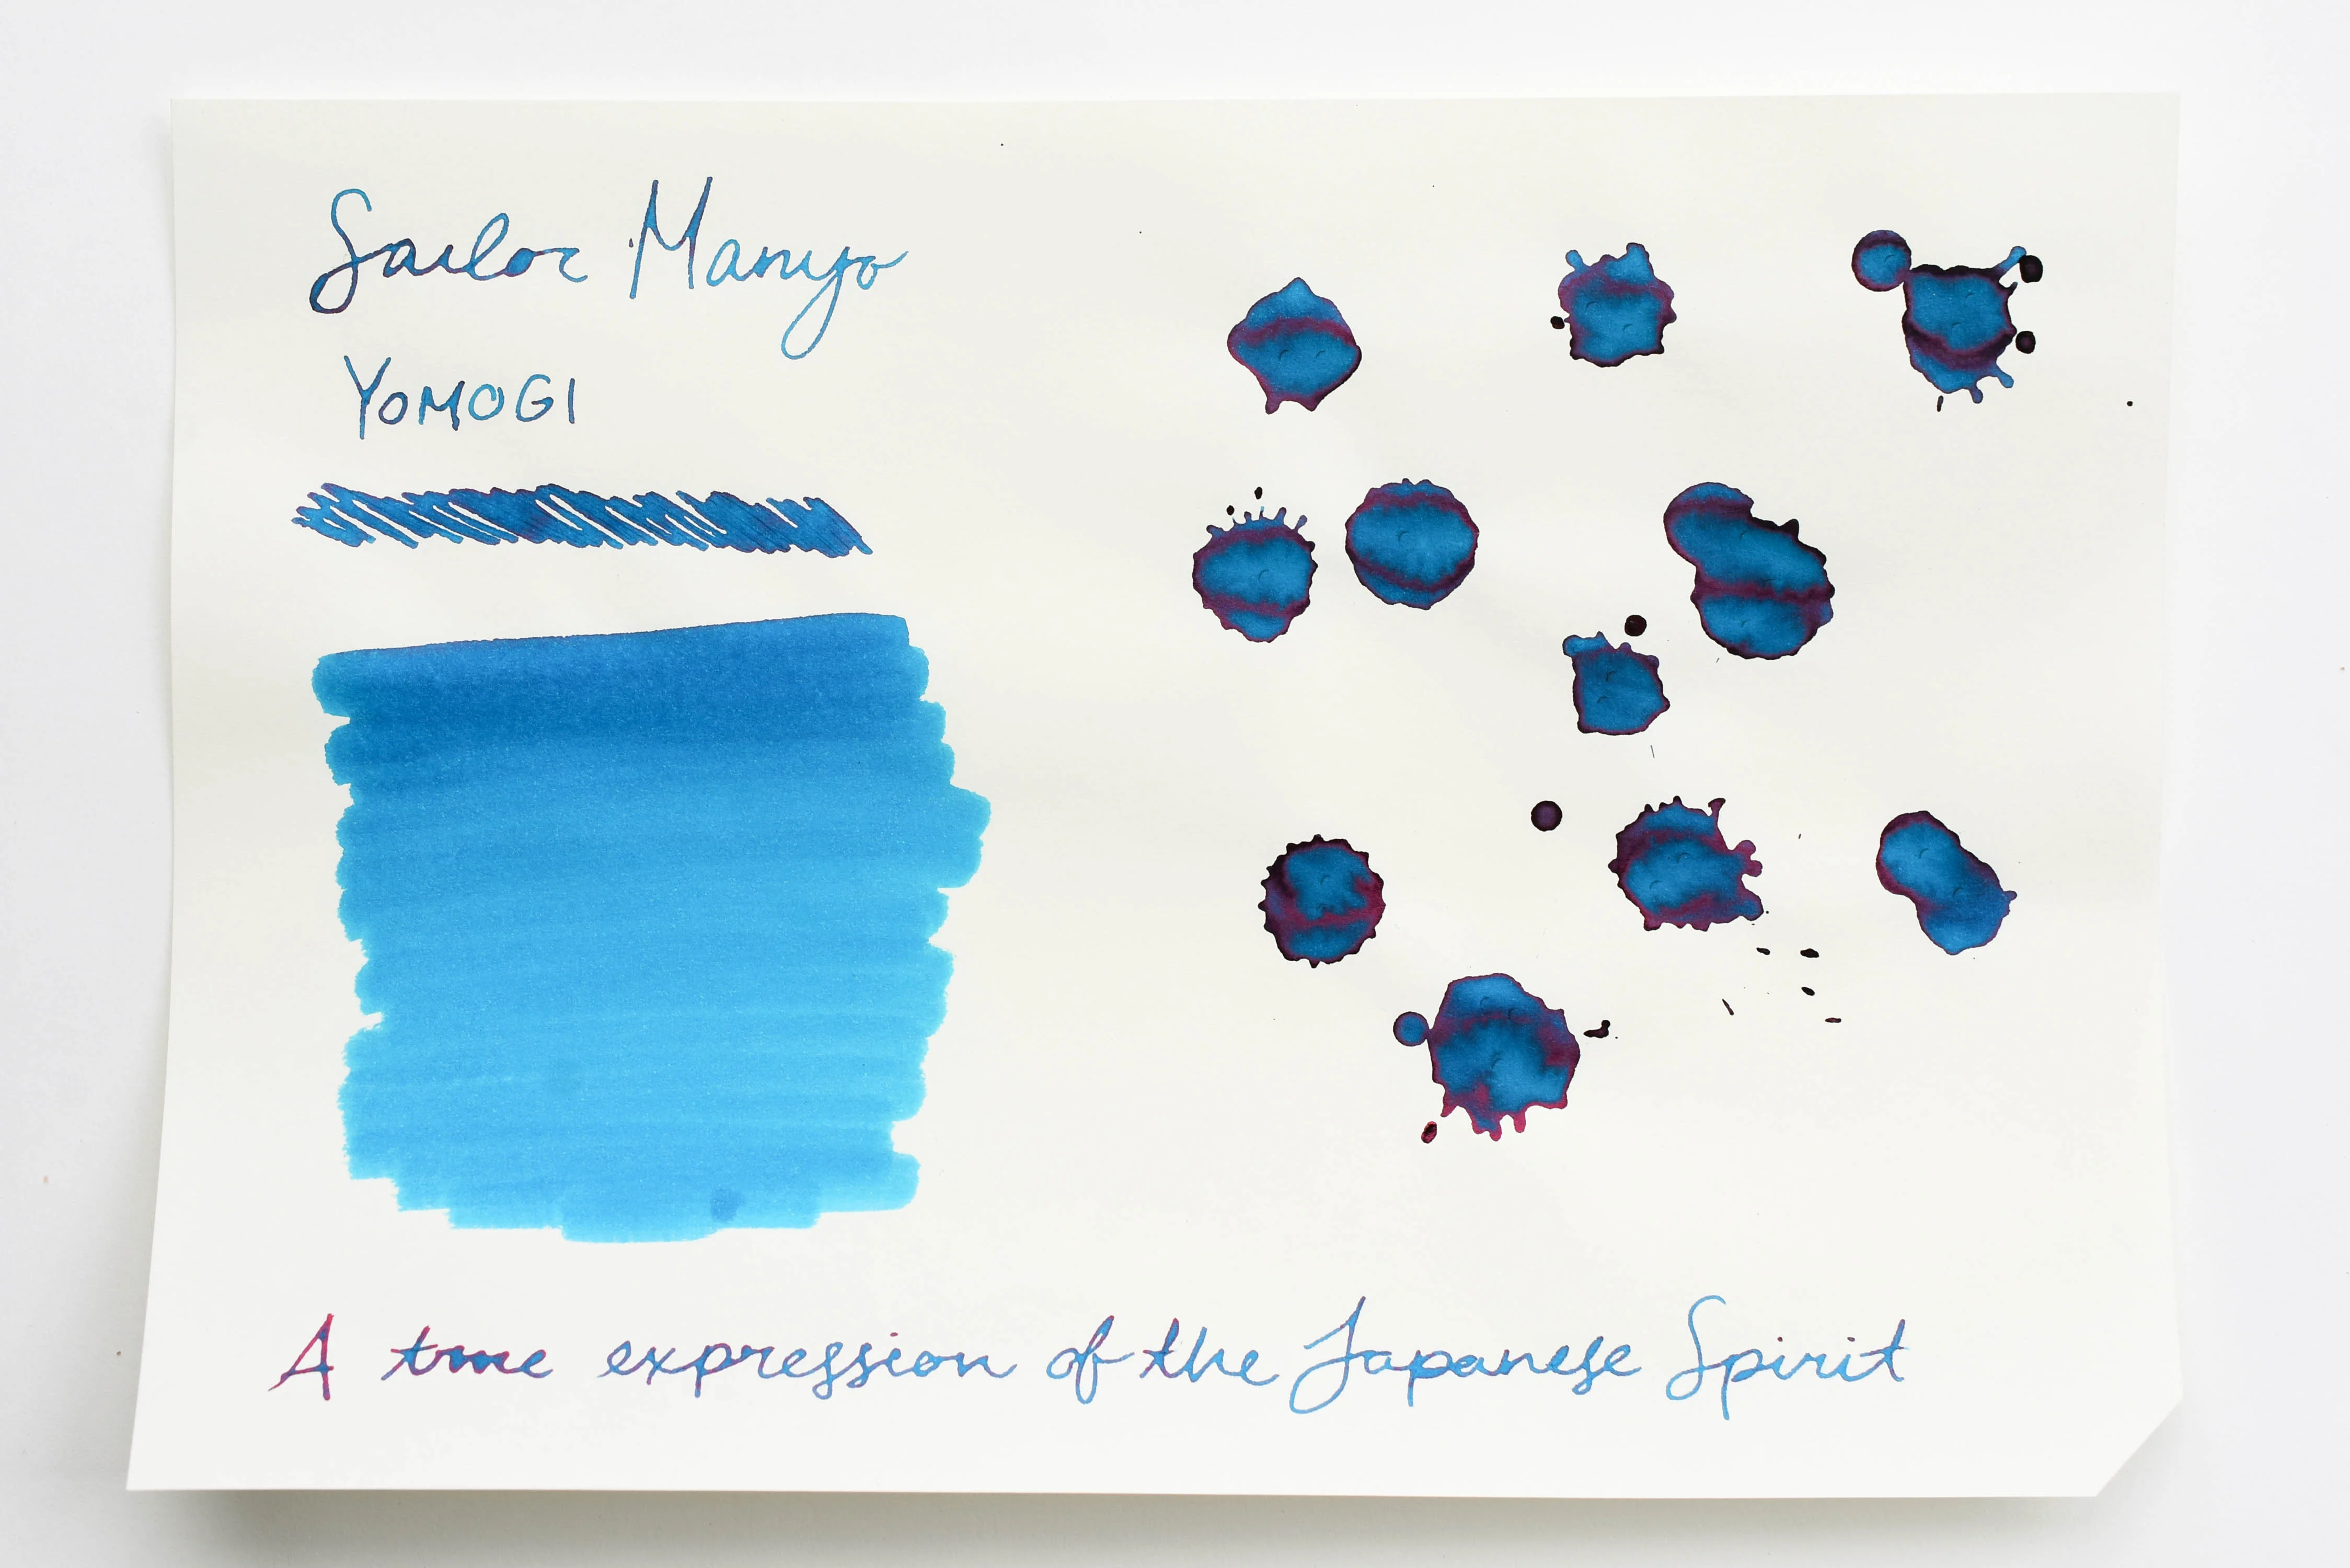 Sailor Manyo
YOMOGI
A true expression of the Japanese Spirit